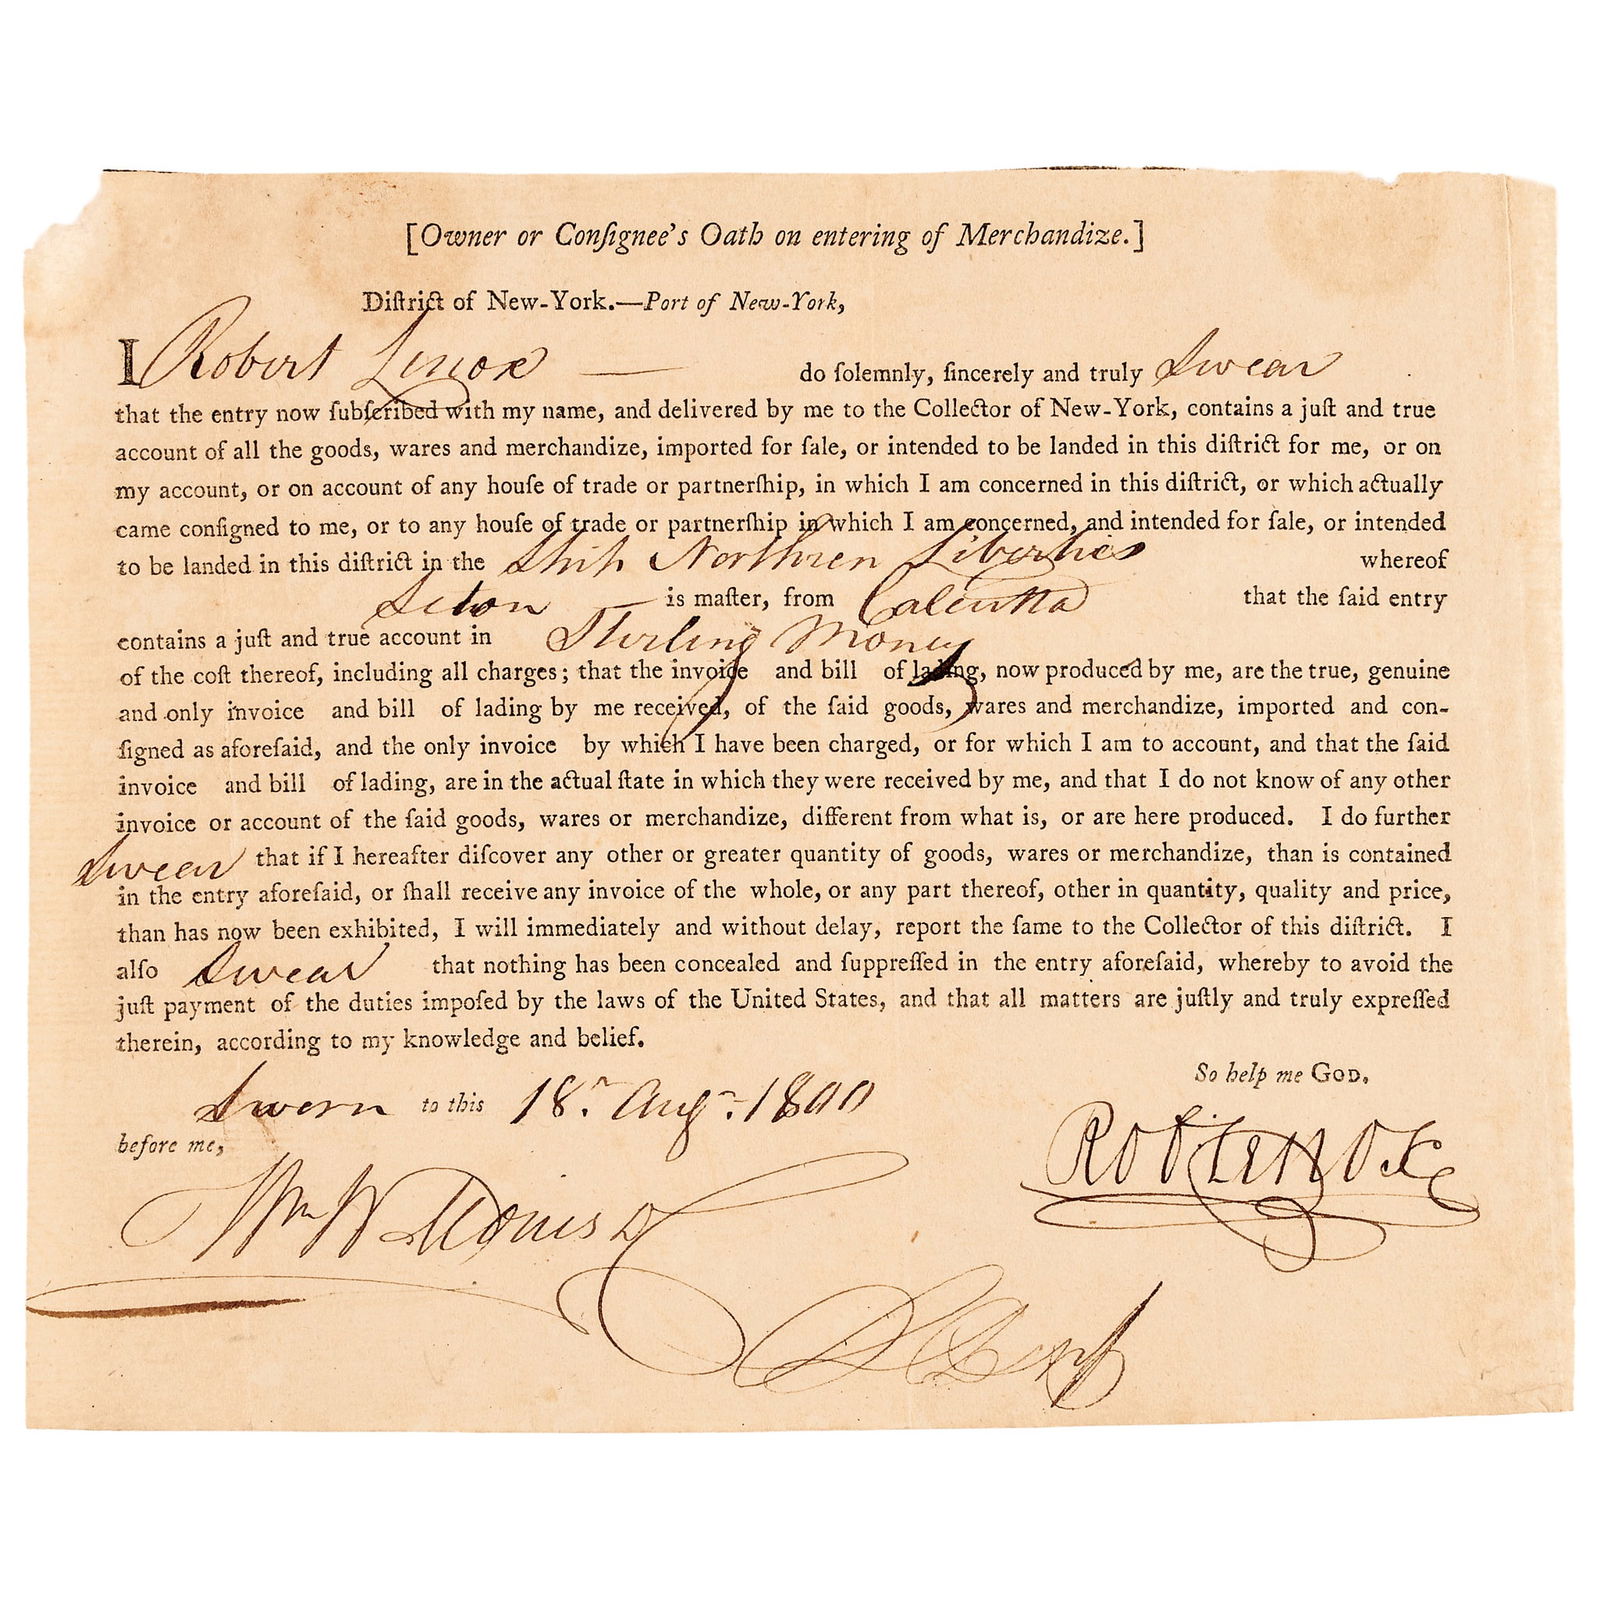 [Owner or Conſignee's Oath on entering of Merchandize.]
Diſtrict of New-York.—Port of New-York,
I Robert Lenox — do ſolemnly, ſincerely and truly Swear
that the entry now ſubſcribed with my name, and delivered by me to the Collector of New-York, contains a juſt and true
account of all the goods, wares and merchandize, imported for ſale, or intended to be landed in this diſtrict for me, or on
my account, or on account of any houſe of trade or partnerſhip, in which I am concerned in this diſtrict, or which actually
came conſigned to me, or to any houſe of trade or partnerſhip in which I am concerned, and intended for ſale, or intended
to be landed in this diſtrict in the Ship Northren Liberties whereof
Seton — is maſter, from Calcutta that the ſaid entry
contains a juſt and true account in Sterling Money
of the coſt thereof, including all charges; that the invoice and bill of lading, now produced by me, are the true, genuine
and only invoice and bill of lading by me received, of the ſaid goods, wares and merchandize, imported and con-
ſigned as aforeſaid, and the only invoice by which I have been charged, or for which I am to account, and that the ſaid
invoice and bill of lading, are in the actual ſtate in which they were received by me, and that I do not know of any other
invoice or account of the ſaid goods, wares or merchandize, different from what is, or are here produced. I do further
Swear that if I hereafter diſcover any other or greater quantity of goods, wares or merchandize, than is contained
in the entry aforeſaid, or ſhall receive any invoice of the whole, or any part thereof, other in quantity, quality and price,
than has now been exhibited, I will immediately and without delay, report the ſame to the Collector of this diſtrict. I
alſo Swear that nothing has been concealed and ſuppreſſed in the entry aforeſaid, whereby to avoid the
juſt payment of the duties impoſed by the laws of the United States, and that all matters are juſtly and truly expreſſed
therein, according to my knowledge and belief.
So help me GOD.
Sworn to this 18. Augt. 1800
before me,
Rob Lenox